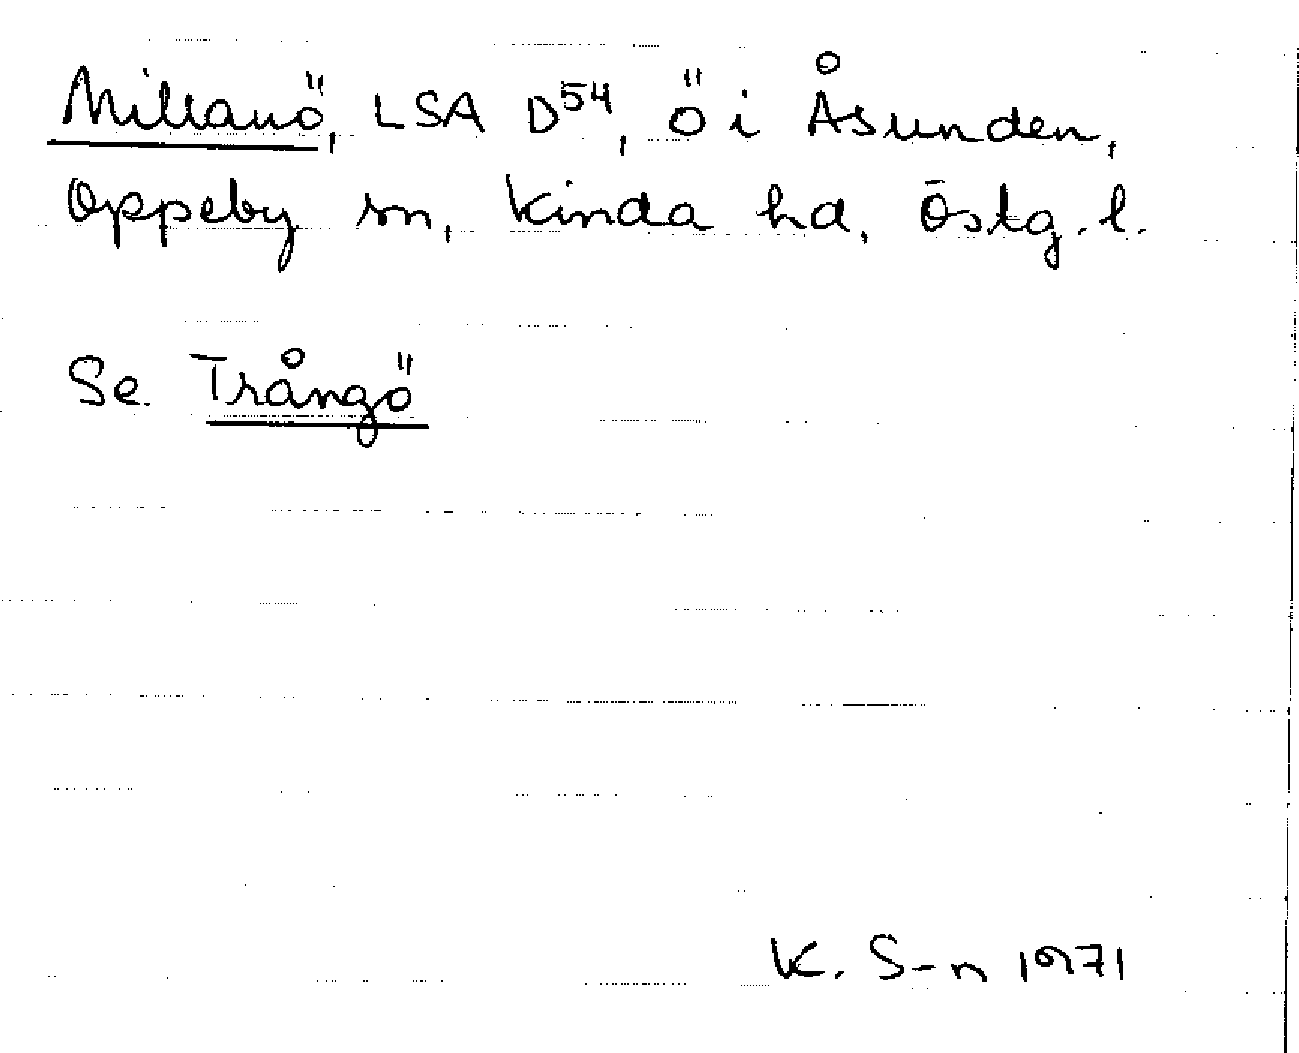 Millanö, LSA D54, ö i Åsunden,
Oppeby sn, Kinda hd, Östg. l.
Se Trångö
K. S-n 1971